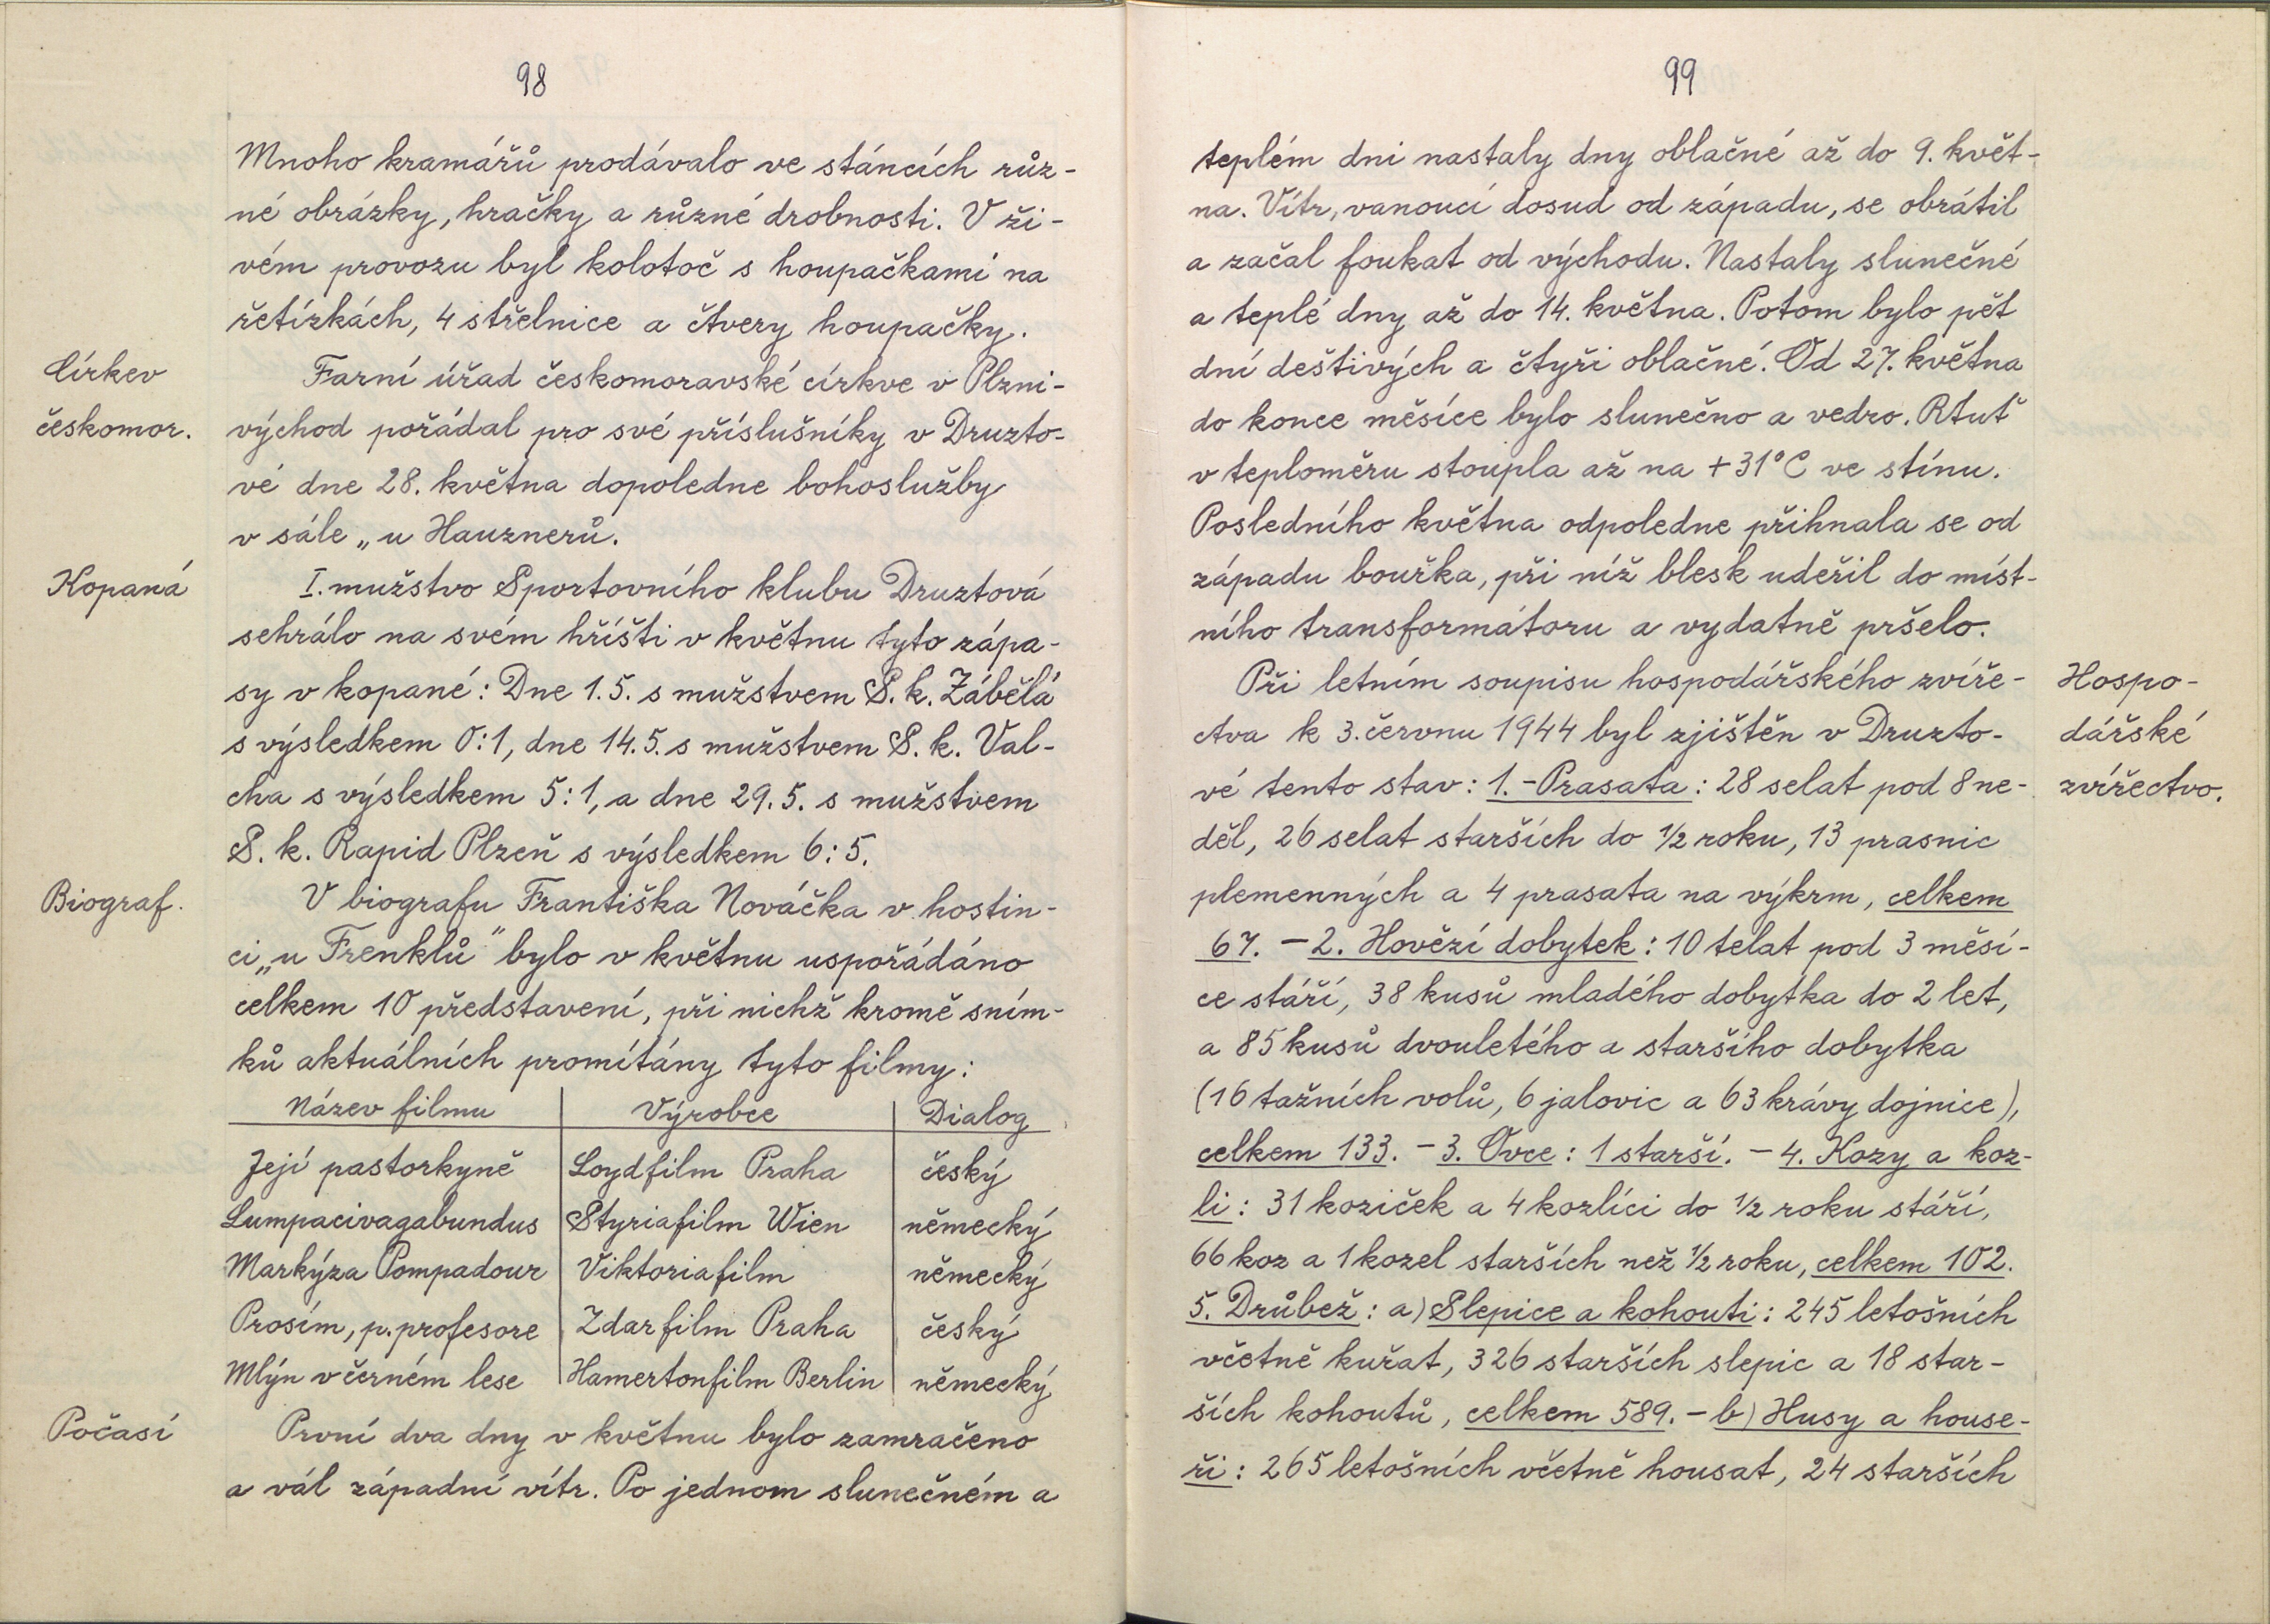 98
Mnoho kramářů prodávalo ve stáncích růz-
né obrázky, hračky a různé drobnosti. V ži-
vém provozu byl kolotoč s houpačkami na
řetízkách, 4 střelnice a čtvery houpačky.
Církev
českomor.
Farní úřad českomoravské církve v Plzni-
východ pořádal pro své příslušníky v Druzto-
vé dne 28. května dopoledne bohoslužby
v sále „u Hauznerů.
Kopaná
I. mužstvo Sportovního klubu Druztová
sehrálo na svém hřišti v květnu tyto zápa-
sy v kopané: Dne 1.5. s mužstvem S. k. Zábělá
s výsledkem 0:1, dne 14.5. s mužstvem S. k. Val-
cha s výsledkem 5:1, a dne 29.5. s mužstvem
S. k. Rapid Plzeň s výsledkem 6:5.
Biograf.
V biografu Františka Nováčka v hostin-
ci „u Frenklů" bylo v květnu uspořádáno
celkem 10 představení, při nichž kromě sním-
ků aktuálních promítány tyto filmy:
Název filmu Výrobce Dialog
Její pastorkyně Loydfilm Praha český
Lumpacivagabundus Styriafilm Wien německý
Markýza Pompadour Viktoriafilm německý
Prosím, p. profesore Zdarfilm Praha český
Mlýn v černém lese Hamertonfilm Berlin německý
Počasí
První dva dny v květnu bylo zamračeno
a vál západní vítr. Po jednom slunečném a
99
teplém dni nastaly dny oblačné až do 9. květ-
na. Vítr, vanoucí dosud od západu, se obrátil
a začal foukat od východu. Nastaly slunečné
a teplé dny až do 14. května. Potom bylo pět
dní deštivých a čtyři oblačné. Od 27. května
do konce měsíce bylo slunečno a vedro. Rtuť
v teploměru stoupla až na +31°C ve stínu.
Posledního května odpoledne přihnala se od
západu bouřka, při níž blesk udeřil do míst-
ního transformátoru a vydatně pršelo.
Hospo-
dářské
zvířectvo.
Při letním soupisu hospodářského zvíře-
ctva k 3. červnu 1944 byl zjištěn v Druzto-
vé tento stav: 1. - Prasata: 28 selat pod 8 ne-
děl, 26 selat starších do 1/2 roku, 13 prasnic
plemenných a 4 prasata na výkrm, celkem
67. - 2. Hovězí dobytek: 10 telat pod 3 měsí-
ce stáří, 38 kusů mladého dobytka do 2 let,
a 85 kusů dvouletého a staršího dobytka
(16 tažních volů, 6 jalovic a 63 krávy dojnice),
celkem 133. - 3. Ovce: 1 starší. - 4. Kozy a koz-
li: 31 koziček a 4 kozlíci do 1/2 roku stáří,
66 koz a 1 kozel starších než 1/2 roku, celkem 102.
5. Drůbež: a) Slepice a kohouti: 245 letošních
včetně kuřat, 326 starších slepic a 18 star-
ších kohoutů, celkem 589. - b) Husy a house-
ři: 265 letošních včetně housat, 24 starších